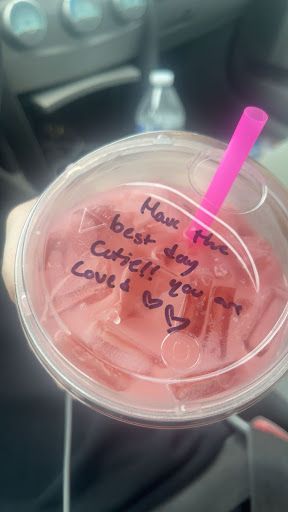 Have the
best day
Cutie!! you are
loved ♡♡